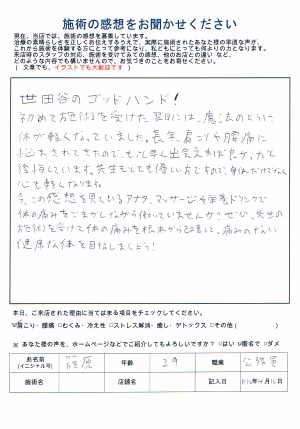 施術の感想をお聞かせください
現在、当店では、施術の感想を募集しています。
治療の素晴らしさを正しくお伝えするうえで、実際に施術されたあなた様の率直な声が、
これから施術を体験する方にとって参考になり、私どもにとっても何よりの力となります。
来店時のスタッフの対応、施術を受けてみての感想、他のお店との違い など、
どのような内容でも構いませんので、お気づきのことをお寄せください。
( 文章でも、イラストでも大歓迎です )
世田谷のゴッドハンド!
初めて施術を受けた翌日には、魔法のように
体が軽くなっていました。長年肩こりや腰痛に
悩まされてきたので、もっと早く出会えれば良かったと
後悔しています。先生もとても優しい方ですので、身体だけでなく
心も軽くなります。
今、この感想を見ているアナタ、マッサージや栄養ドリンクで
体の痛みをごまかしながら働いていませんか?ぜひ、先生の
施術を受けて体の痛みを根本から改善して、痛みのない
健康な体を目指しましょう!
本日、ご来店された理由に当てはまる項目をチェックしてください。
☑肩こり・腰痛 □むくみ・冷え性 □ストレス解消・癒し・デトックス □その他( )
※ あなた様の声を、ホームページなどでご紹介してもよろしいですか? □はい ☑匿名で □ダメ
お名前 (イニシャル可) 篠原 年齢 29 職業 公務員
施術名 店舗名 記入日 月16日